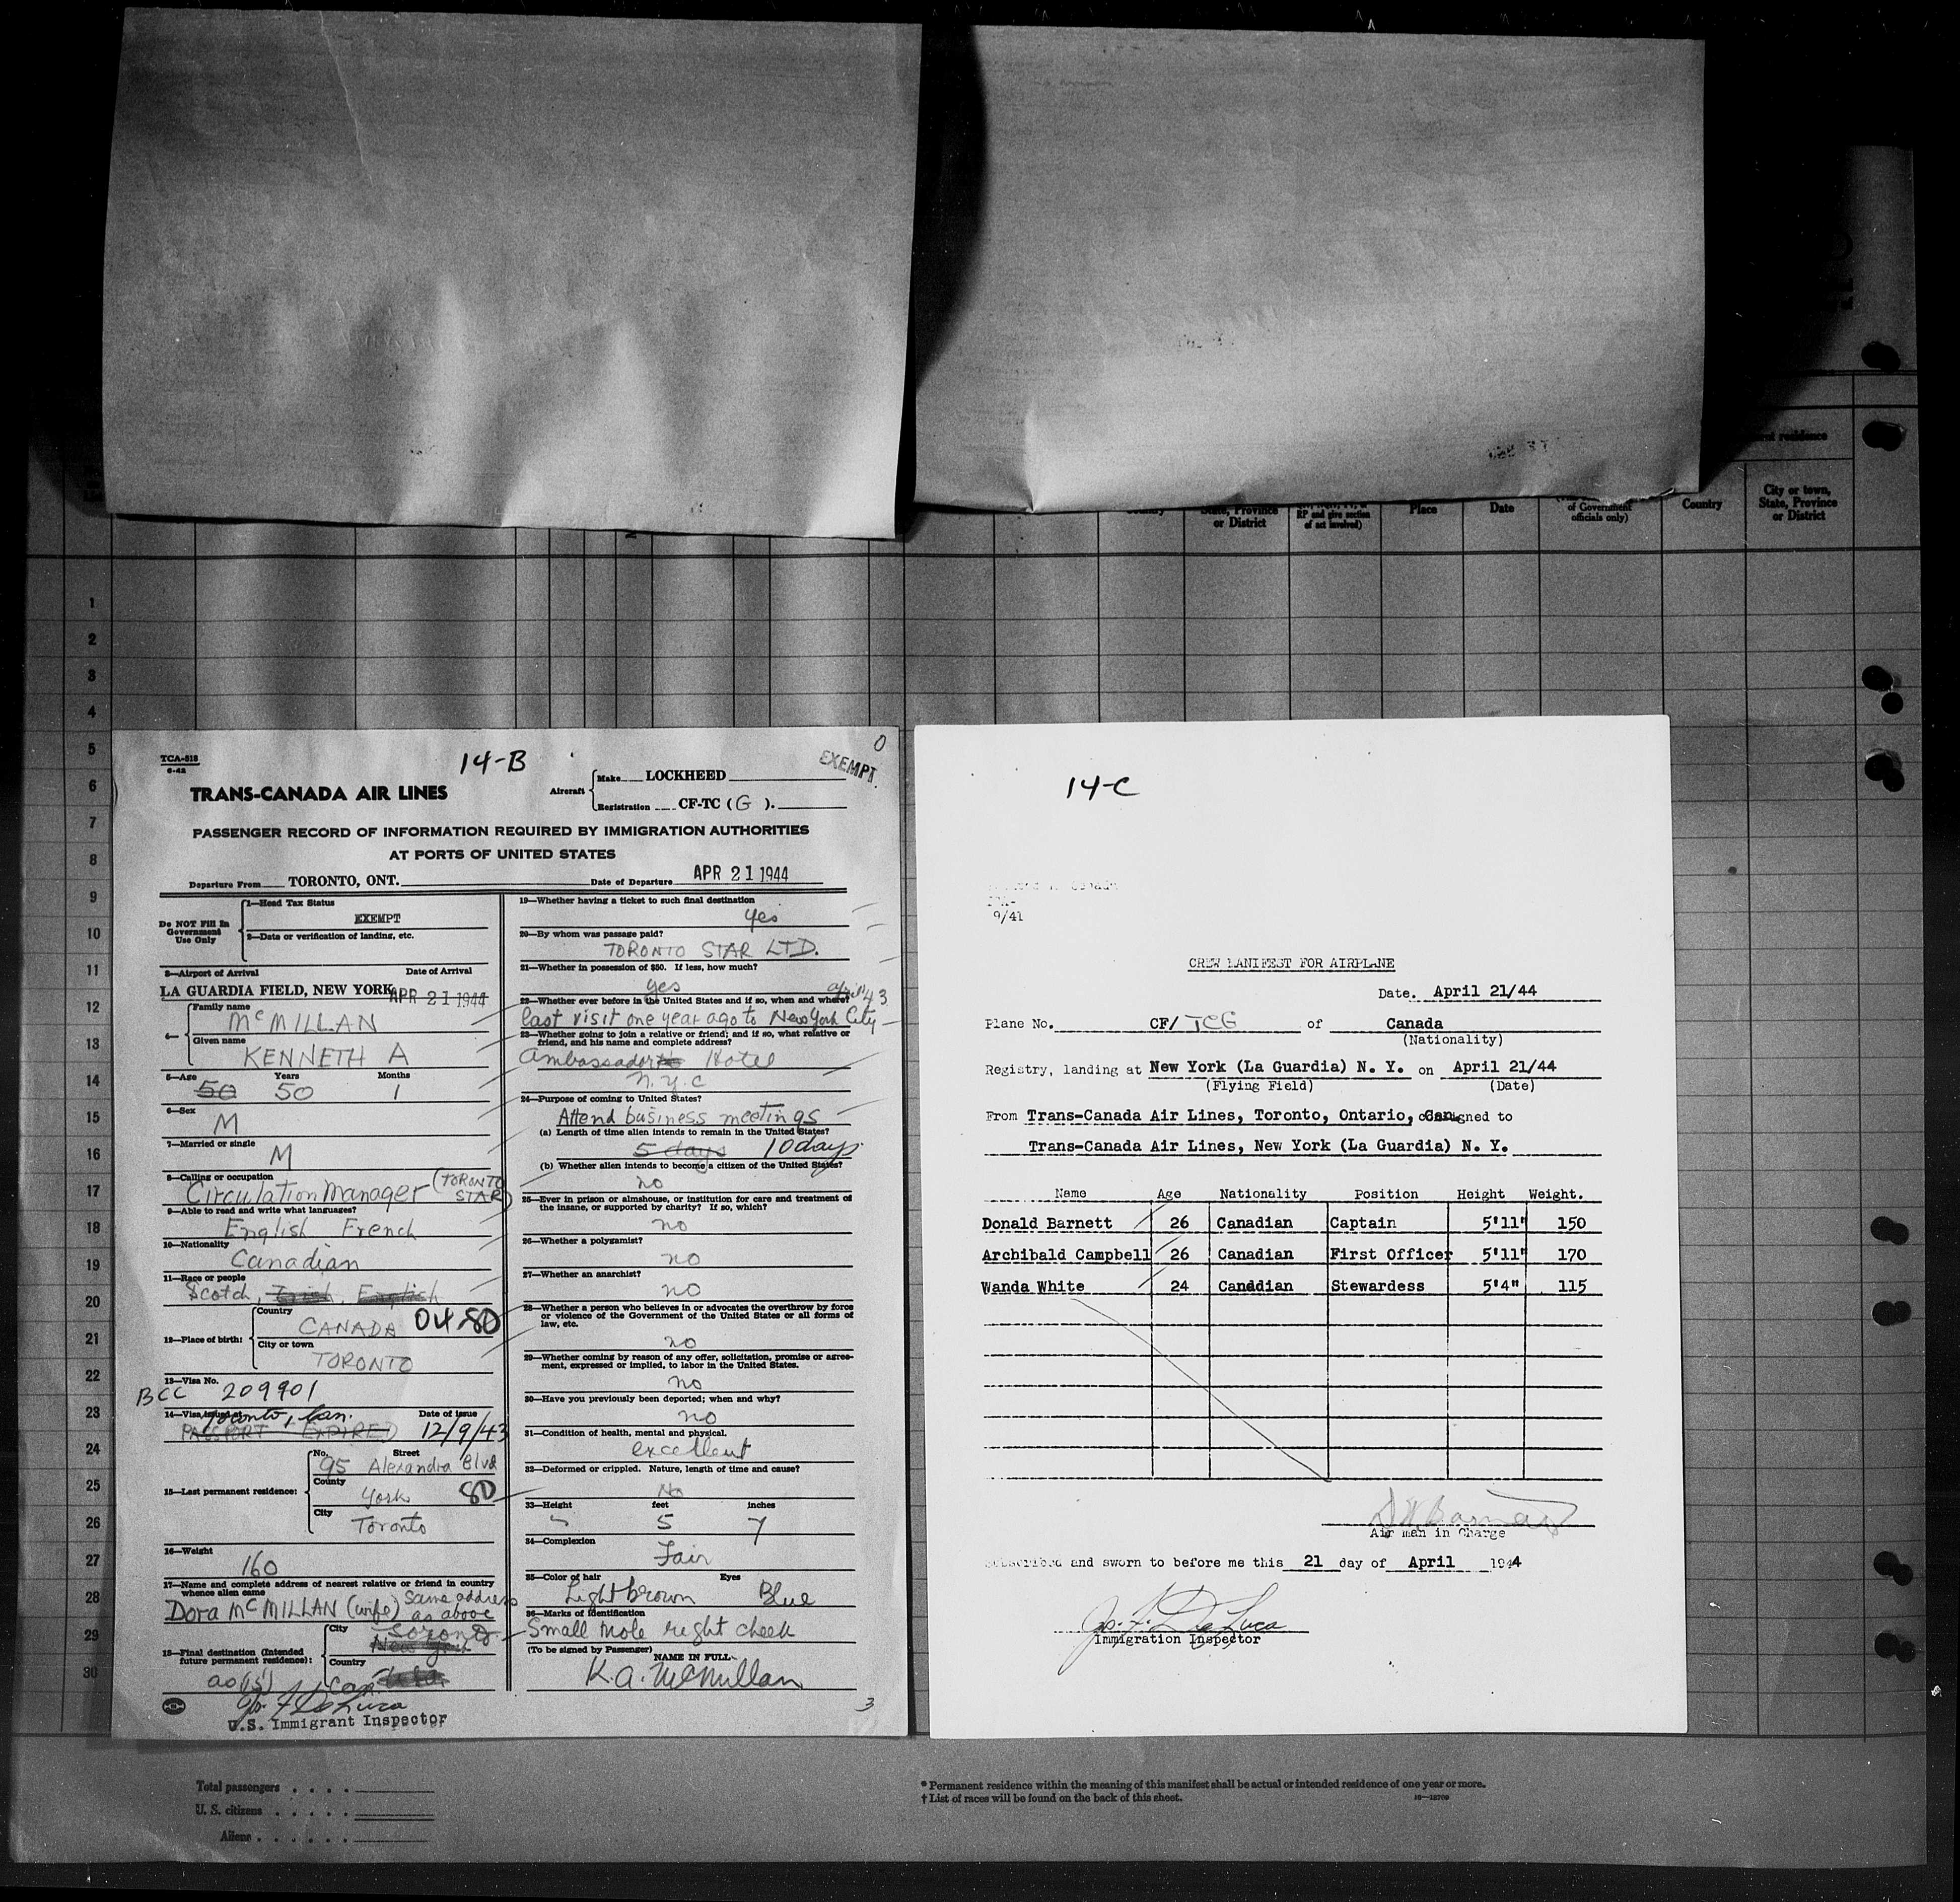 rent residence
Country
State, Province
or District
RP and give section
of act involved)
Place
Date
of Government
officials only)
Country
City or town,
State, Province
or District
1
2
3
4
5
6
7
8
9
10
11
12
13
14
15
16
17
18
19
20
21
22
23
24
25
26
27
28
29
30
TCA-518
6-42
14-B
0
EXEMPT
TRANS-CANADA AIR LINES
Aircraft
Make LOCKHEED
Registration CF-TC ( G ).
PASSENGER RECORD OF INFORMATION REQUIRED BY IMMIGRATION AUTHORITIES
AT PORTS OF UNITED STATES
Departure From TORONTO, ONT. Date of Departure APR 21 1944
Do NOT Fill In
Government
Use Only
1—Head Tax Status
EXEMPT
2—Data or verification of landing, etc.
3—Airport of Arrival Date of Arrival
LA GUARDIA FIELD, NEW YORK APR 21 1944
4— Family name
McMILLAN
Given name
KENNETH A
5—Age Years Months
50 50 1
6—Sex
M
7—Married or single
M
8—Calling or occupation
Circulation Manager (TORONTO
STAR)
9—Able to read and write what languages?
English French
10—Nationality
Canadian
11—Race or people
Scotch, Irish, English
12—Place of birth:
Country
CANADA 04-80
City or town
TORONTO
13—Visa No.
BCC 209901
14—Visa issued at Date of issue
Toronto, Can.
PASSPORT EXPIRED 12/9/43
15—Last permanent residence:
No. Street
95 Alexandra Blvd
County
York 80
City
Toronto
16—Weight
160
17—Name and complete address of nearest relative or friend in country
whence alien came
Dora McMILLAN (wife) Same address
as above
18—Final destination (Intended
future permanent residence):
City
Toronto
New York
Country
as (15) Can.
Jos. F. DeLuca
U.S. Immigrant Inspector
19—Whether having a ticket to such final destination
yes
20—By whom was passage paid?
TORONTO STAR LTD.
21—Whether in possession of $50. If less, how much?
yes
22—Whether ever before in the United States and if so, when and where?
april 43
last visit one year ago to New York City
23—Whether going to join a relative or friend; and if so, what relative or
friend, and his name and complete address?
Ambassador Hotel
N.Y.C
24—Purpose of coming to United States?
Attend business meetings
(a) Length of time alien intends to remain in the United States?
5 days 10 days
(b) Whether alien intends to become a citizen of the United States?
no
25—Ever in prison or almshouse, or institution for care and treatment of
the insane, or supported by charity? If so, which?
no
26—Whether a polygamist?
no
27—Whether an anarchist?
no
28—Whether a person who believes in or advocates the overthrow by force
or violence of the Government of the United States or all forms of
law, etc.
no
29—Whether coming by reason of any offer, solicitation, promise or agree-
ment, expressed or implied, to labor in the United States.
no
30—Have you previously been deported; when and why?
no
31—Condition of health, mental and physical.
excellent
32—Deformed or crippled. Nature, length of time and cause?
No
33—Height feet inches
5 7
34—Complexion
Fair
35—Color of hair Eyes
Light brown Blue
36—Marks of identification
Small mole right cheek
(To be signed by Passenger)
NAME IN FULL
K.A. McMillan
3
14-C
9/41
CREW MANIFEST FOR AIRPLANE
Date. April 21/44
Plane No. CF/ TCG of Canada
(Nationality)
Registry, landing at New York (La Guardia) N. Y. on April 21/44
(Flying Field) (Date)
From Trans-Canada Air Lines, Toronto, Ontario, Can. consigned to
Trans-Canada Air Lines, New York (La Guardia) N. Y.
Name Age Nationality Position Height Weight.
Donald Barnett 26 Canadian Captain 5'11" 150
Archibald Campbell 26 Canadian First Officer 5'11" 170
Wanda White 24 Canadian Stewardess 5'4" 115
Air man in Charge
Subscribed and sworn to before me this 21 day of April 1944
Jos. F. DeLuca
Immigration Inspector
Total passengers
U. S. citizens
Aliens
* Permanent residence within the meaning of this manifest shall be actual or intended residence of one year or more.
† List of races will be found on the back of this sheet.